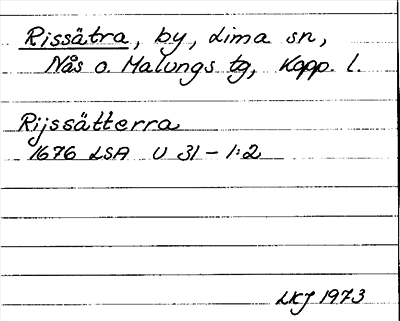 Rissätra, by, Lima sn,
Nås o. Malungs tg, Kopp. l.
Rijssätterra
1676 LSA U 31 - 1:2
LKJ 1973